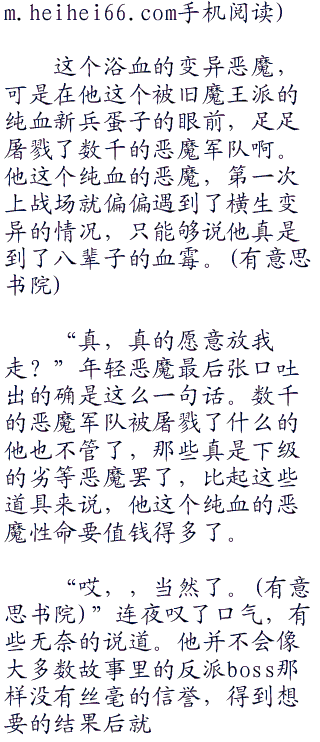 m.heihei66.com手机阅读)
这个浴血的变异恶魔，
可是在他这个被旧魔王派的
纯血新兵蛋子的眼前，足足
屠戮了数千的恶魔军队啊。
他这个纯血的恶魔，第一次
上战场就偏偏遇到了横生变
异的情况，只能够说他真是
到了八辈子的血霉。(有意思
书院)
“真，真的愿意放我
走？”年轻恶魔最后张口吐
出的确是这么一句话。数千
的恶魔军队被屠戮了什么的
他也不管了，那些真是下级
的劣等恶魔罢了，比起这些
道具来说，他这个纯血的恶
魔性命要值钱得多了。
“哎，，当然了。(有意
思书院)”连夜叹了口气，有
些无奈的说道。他并不会像
大多数故事里的反派boss那
样没有丝毫的信誉，得到想
要的结果后就